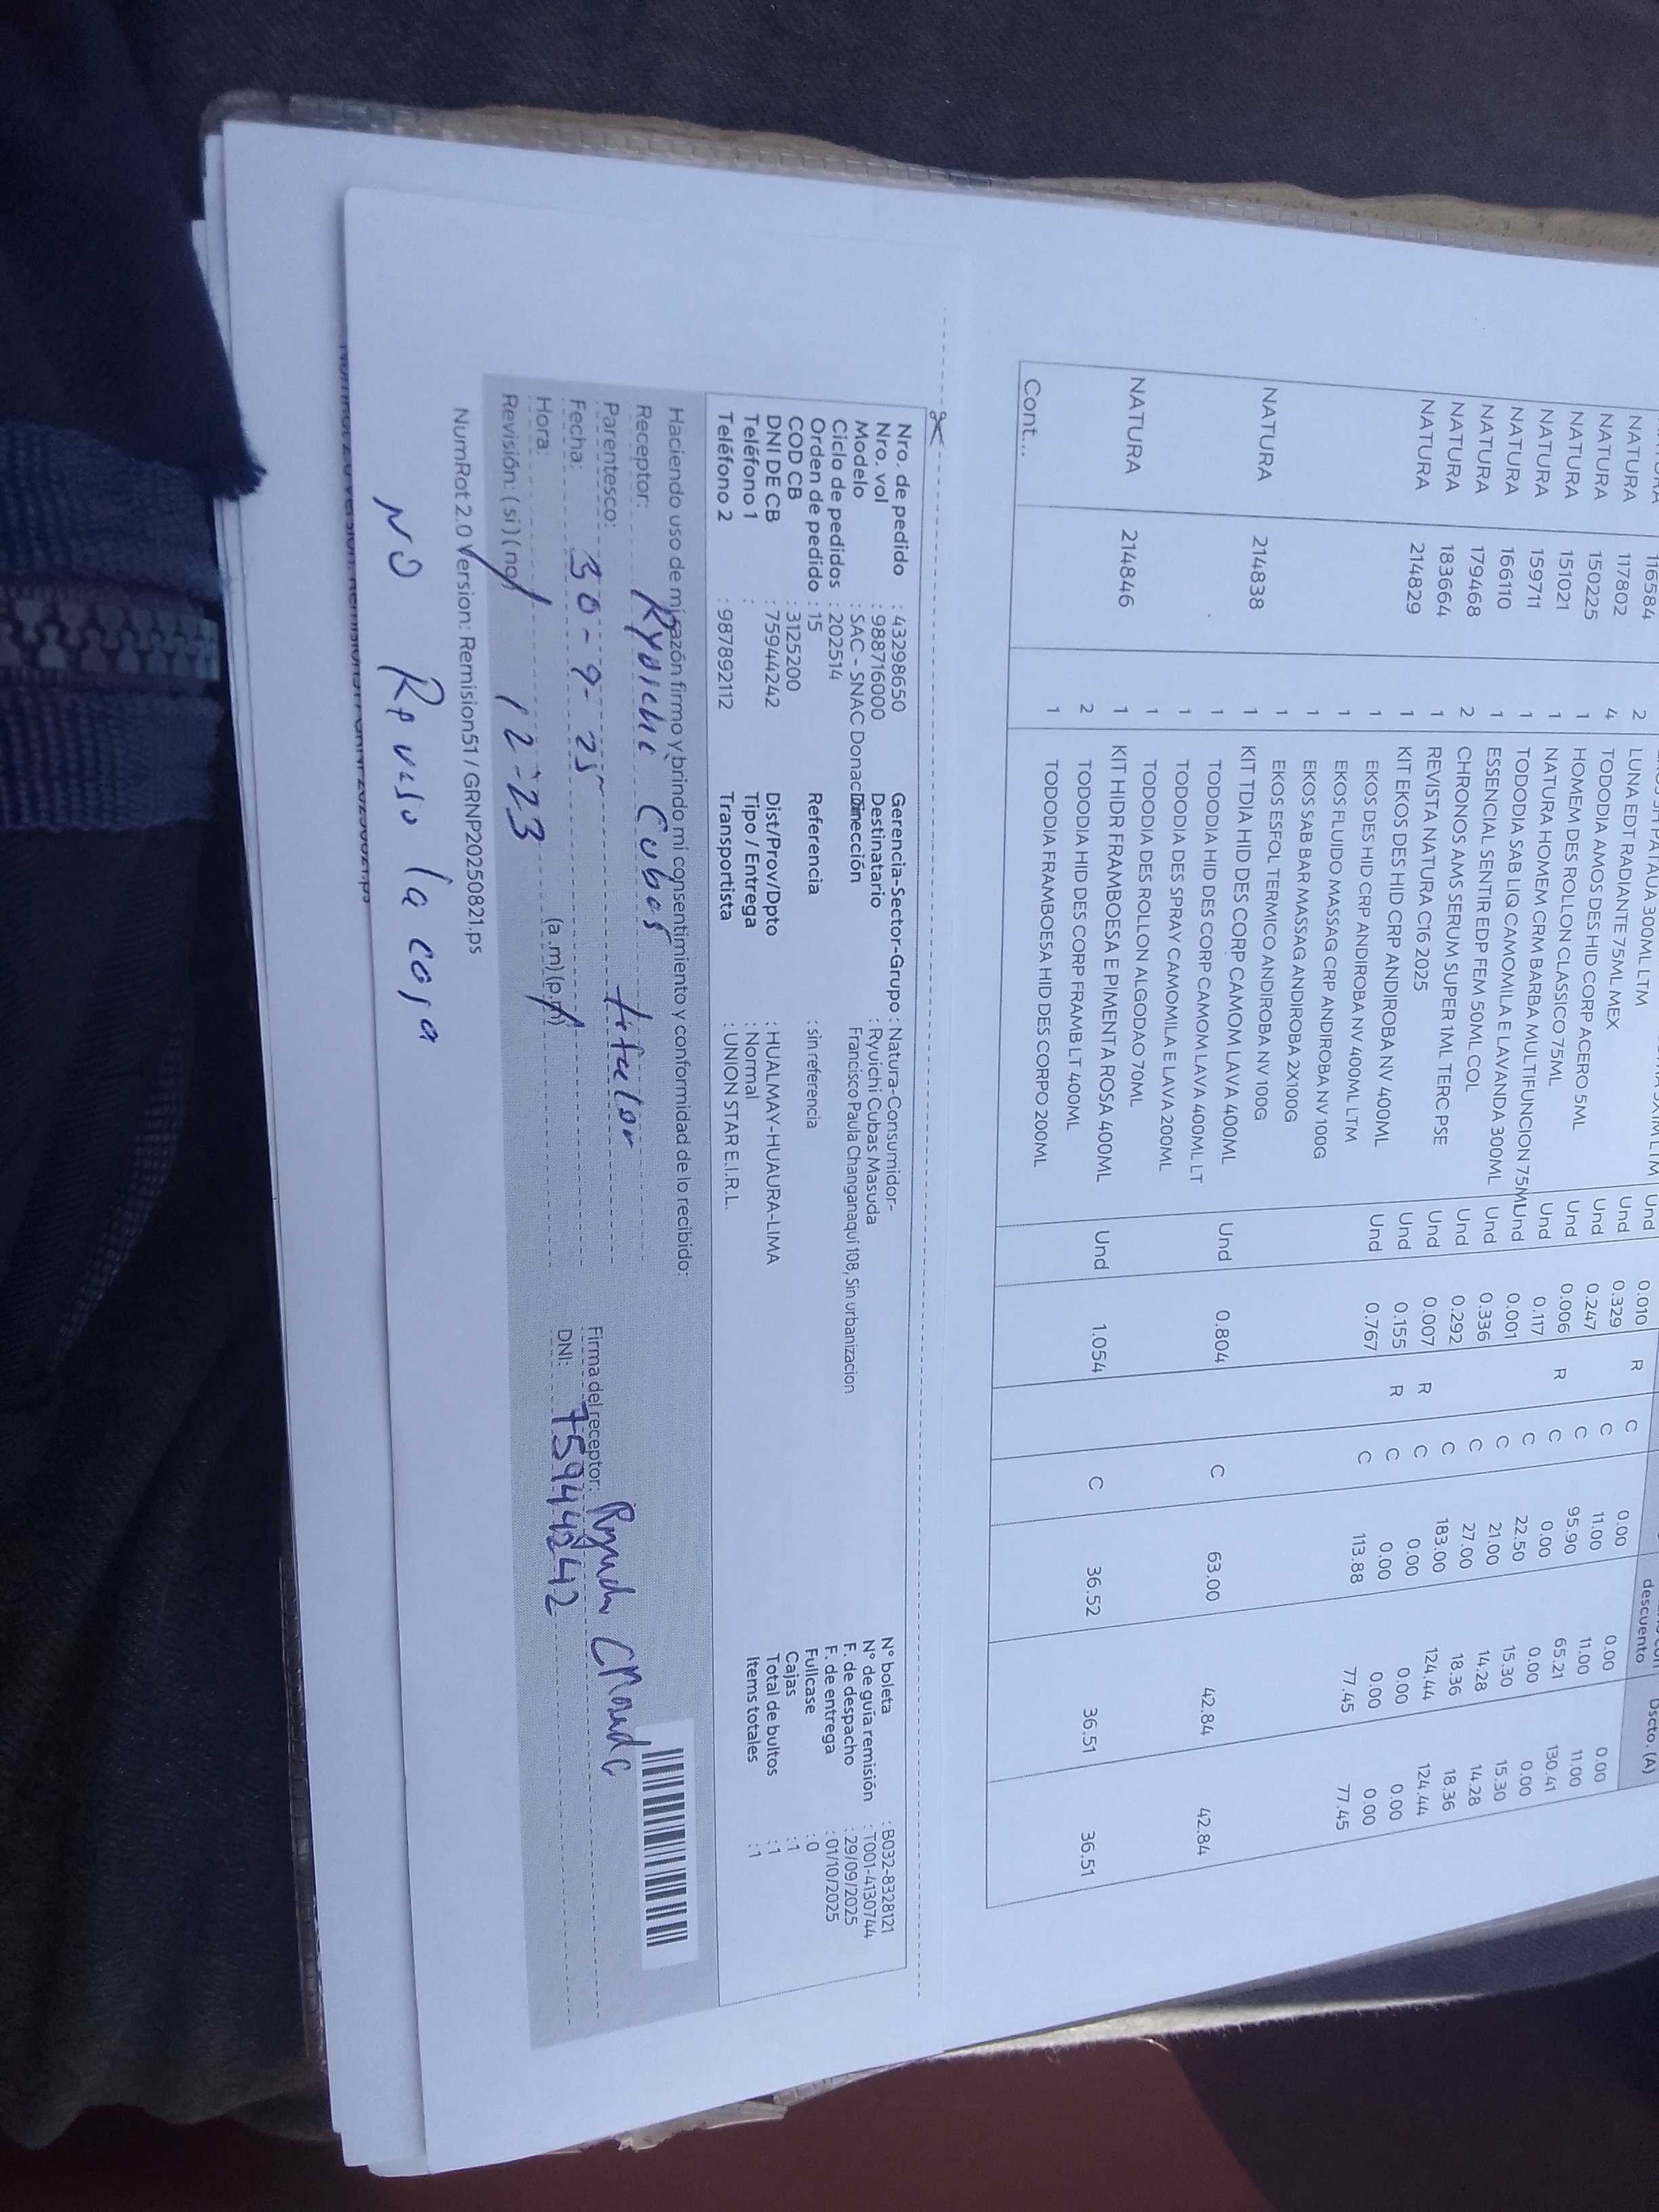 descuento Dscto. (A)
PATAUA 300ML LTM Und 0.329 C 11.00 11.00 11.00
NATURA 116584 2 LUNA EDT RADIANTE 75ML MEX Und 0.247 C 95.90 65.21 130.41
NATURA 117802 4 TODODIA AMOS DES HID CORP ACERO 5ML Und 0.006 R C 0.00 0.00 0.00
NATURA 150225 1 HOMEM DES ROLLON CLASSICO 75ML Und 0.117 C 22.50 15.30 15.30
NATURA 151021 1 NATURA HOMEM CRM BARBA MULTIFUNCION 75ML Und 0.001 C 21.00 14.28 14.28
NATURA 159711 1 TODODIA SAB LIQ CAMOMILA E LAVANDA 300ML Und 0.336 C 27.00 18.36 18.36
NATURA 166110 1 ESSENCIAL SENTIR EDP FEM 50ML COL Und 0.292 C 183.00 124.44 124.44
NATURA 179468 2 CHRONOS AMS SERUM SUPER 1ML TERC PSE Und 0.007 R C 0.00 0.00 0.00
NATURA 183664 1 REVISTA NATURA C16 2025 Und 0.155 R C 0.00 0.00 0.00
NATURA 214829 1 KIT EKOS DES HID CRP ANDIROBA NV 400ML Und 0.767 C 113.88 77.45 77.45
1 EKOS DES HID CRP ANDIROBA NV 400ML
1 EKOS FLUIDO MASSAG CRP ANDIROBA NV 400ML LTM
1 EKOS SAB BAR MASSAG ANDIROBA NV 100G
1 EKOS ESFOL TERMICO ANDIROBA 2X100G
NATURA 214838 1 KIT TDIA HID DES CORP CAMOM LAVA 400ML Und 0.804 C 63.00 42.84 42.84
1 TODODIA HID DES CORP CAMOM LAVA 400ML LT
1 TODODIA DES SPRAY CAMOMILA E LAVA 200ML
1 TODODIA DES ROLLON ALGODAO 70ML
NATURA 214846 1 KIT HIDR FRAMBOESA E PIMENTA ROSA 400ML Und 1.054 C 36.52 36.51 36.51
2 TODODIA HID DES CORP FRAMB LT 400ML
1 TODODIA FRAMBOESA HID DES CORPO 200ML
Cont...
Nro. de pedido : 43298650 Gerencia-Sector-Grupo : Natura-Consumidor- N° boleta : B032-8328121
Nro. vol : 988716000 Destinatario : Ryuichi Cubas Masuda N° de guía remisión : T001-4130744
Modelo : SAC - SNAC Donación Dirección Francisco Paula Changanaquí 108, Sin urbanizacion F. de despacho : 29/09/2025
Ciclo de pedidos : 202514 F. de entrega : 01/10/2025
Orden de pedido : 15 Referencia : sin referencia Fullcase : 0
COD CB : 3125200 Cajas : 1
DNI DE CB : 75944242 Dist/Prov/Dpto : HUALMAY-HUAURA-LIMA Total de bultos : 1
Teléfono 1 : Tipo / Entrega : Normal Items totales : 1
Teléfono 2 : 987892112 Transportista : UNION STAR E.I.R.L.
Haciendo uso de mi razón firmo y brindo mi consentimiento y conformidad de lo recibido:
Receptor: Ryuichi Cubas
Parentesco: titular Firma del receptor:
Fecha: 30-9-25 DNI: 75944242
Hora: 12-23 (a.m)(p.m)
Revisión: (si) (no)
NumRot 2.0 Version: Remision51 / GRNP20250821.ps
NO Revuso la caja